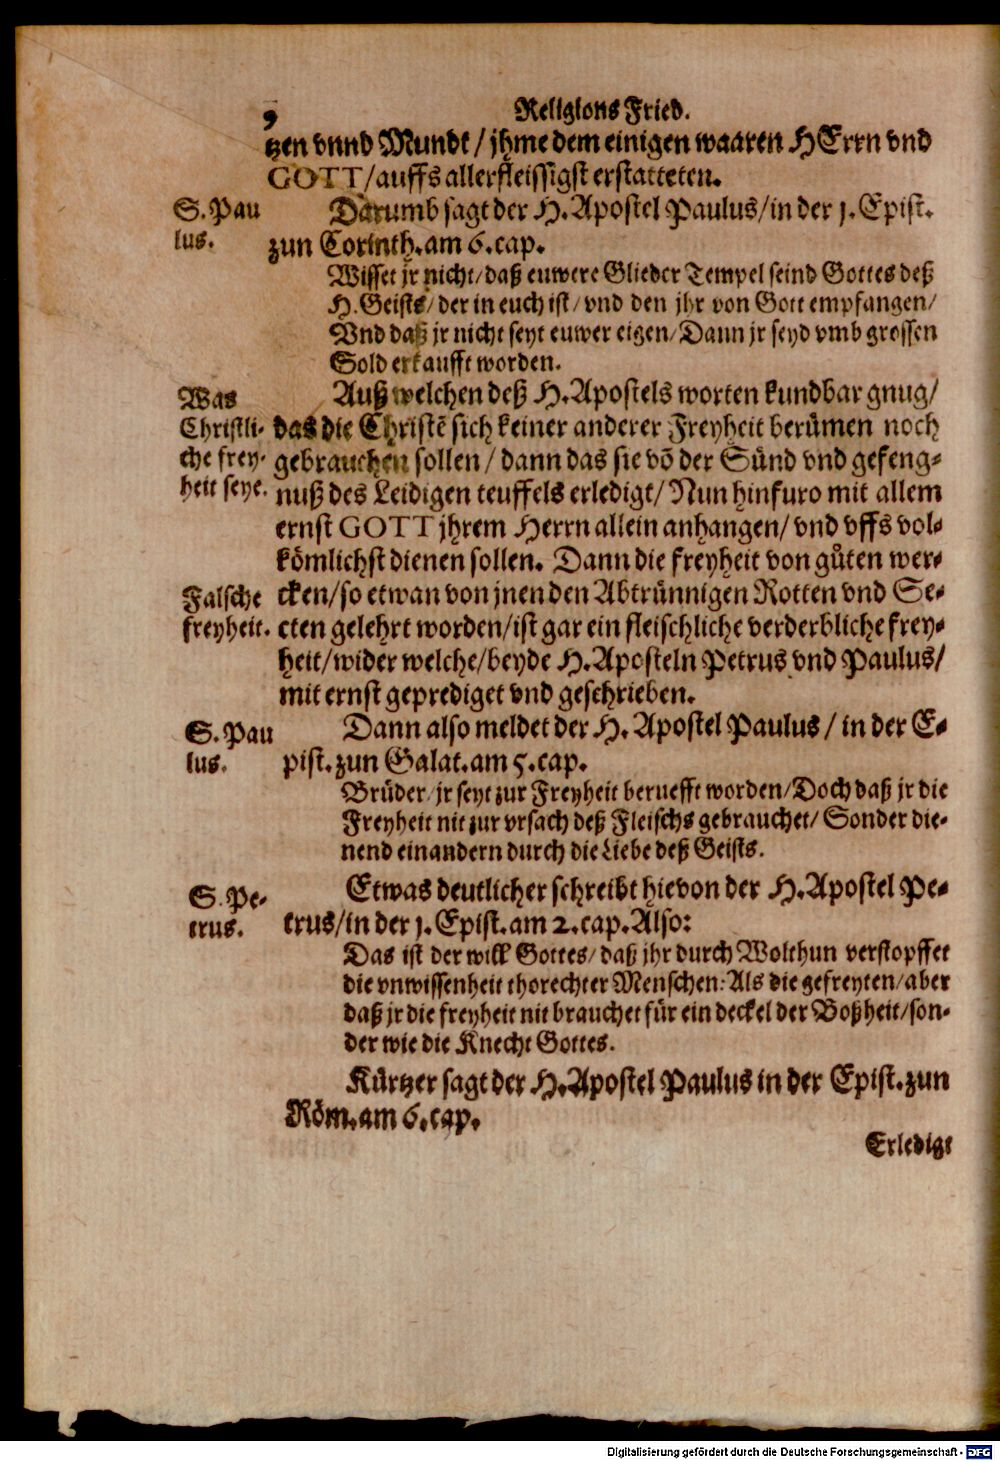 Religions Fried.
tzen vnnd Mundt / jhme dem einigen waaren HErrn vnd
GOTT/auffs allerfleissigst erstatteten.
S. Pau
lus.
Darumb sagt der H. Apostel Paulus/in der j. Epist.
zun Corinth. am 6. cap.
Wisset jr nicht/daß euwere Glieder Tempel seind Gottes deß
H. Geists/ der in euch ist/ vnd den jhr von Gott empfangen/
Vnd daß jr nicht seyt euwer eigen/Dann jr seyd vmb grossen
Sold erkaufft worden.
Was
Christli-
che frey-
heit seye.
Auß welchen deß H. Apostels worten kundbar gnug/
das die Christẽ sich keiner anderer Freyheit berümen noch
gebrauchen sollen / dann das sie võ der Sünd vnd gefeng-
nuß des Leidigen teuffels erledigt/ Nun hinfuro mit allem
ernst GOTT jhrem Herrn allein anhangen/ vnd vffs vol-
kömlichst dienen sollen. Dann die freyheit von gůten wer-
Falsche
freyheit.
cken/so etwan von jnen den Abtrünnigen Rotten vnd Se-
cten gelehrt worden/ist gar ein fleischliche verderbliche frey-
heit/wider welche/beyde H. Aposteln Petrus vnd Paulus/
mit ernst geprediget vnd geschrieben.
S. Pau
lus.
Dann also meldet der H. Apostel Paulus / in der E-
pist. zun Galat. am 5. cap.
Brüder/ jr seyt zur Freyheit beruefft worden/Doch daß jr die
Freyheit nit zur vrsach deß Fleischs gebrauchet/ Sonder die-
nend einandern durch die Liebe deß Geists.
S. Pe-
trus.
Etwas deutlicher schreibt hievon der H. Apostel Pe-
trus/in der j. Epist. am 2. cap. Also:
Das ist der will Gottes/ daß jhr durch Wolthun verstopffet
die vnwissenheit thorechter Menschen: Als die gefreyten/aber
daß jr die freyheit nit brauchet für ein deckel der Boßheit/son-
der wie die Knecht Gottes.
Kürtzer sagt der H. Apostel Paulus in der Epist. zun
Röm. am 6. cap.
Erledigt
Digitalisierung gefördert durch die Deutsche Forschungsgemeinschaft - DFG